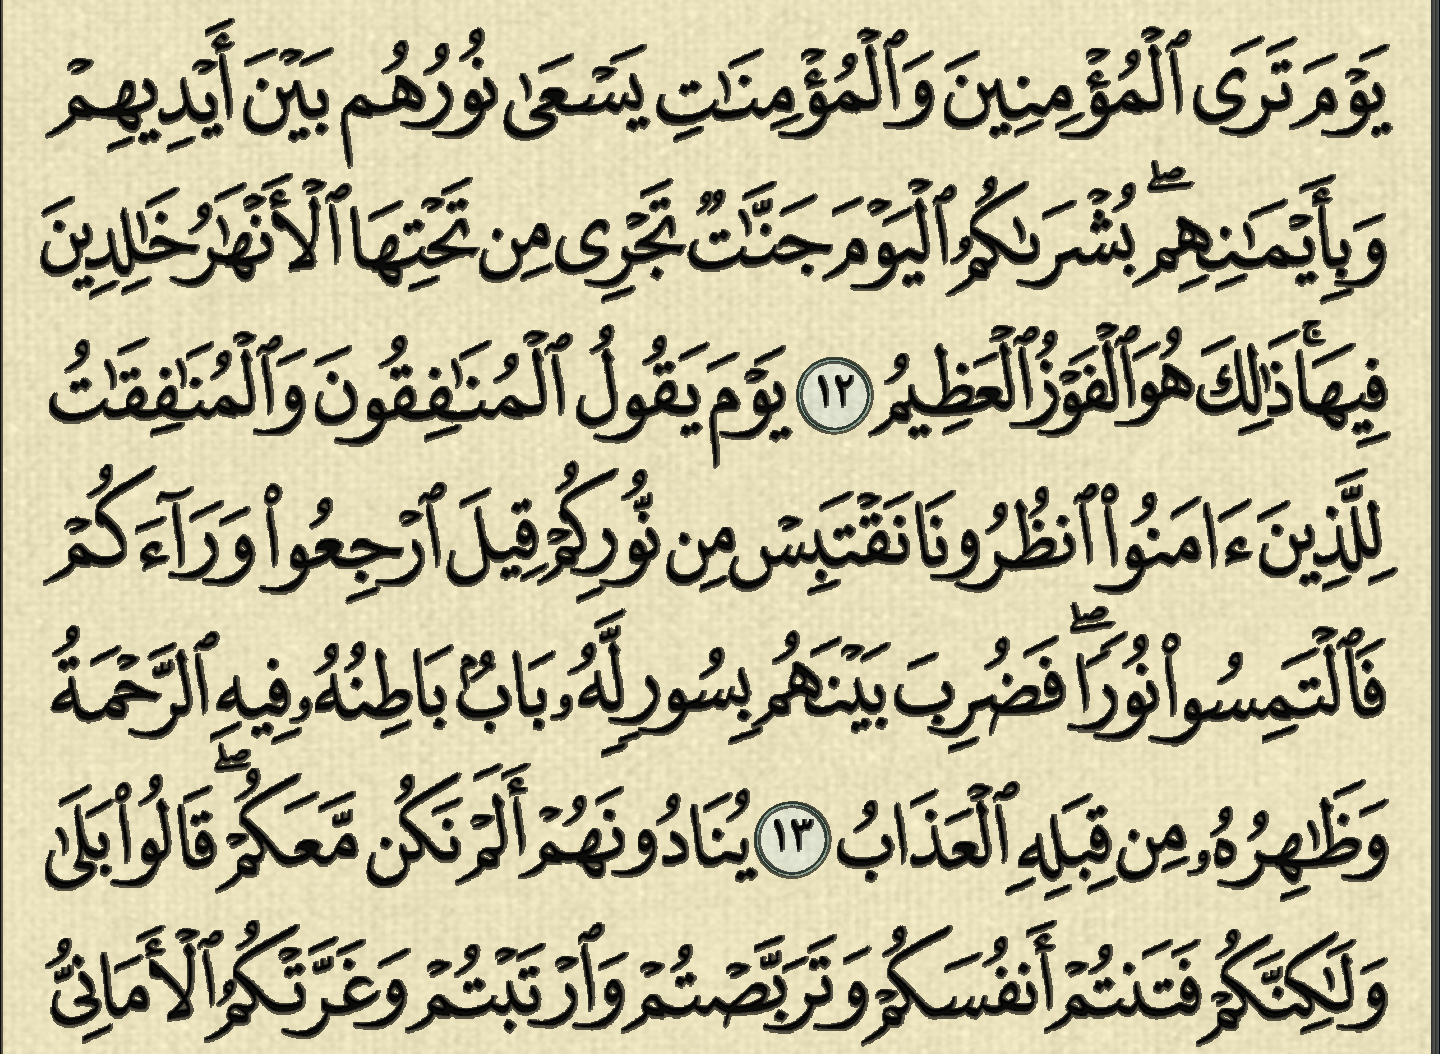 يَوْمَ تَرَى ٱلْمُؤْمِنِينَ وَٱلْمُؤْمِنَٰتِ يَسْعَىٰ نُورُهُم بَيْنَ أَيْدِيهِمْ
وَبِأَيْمَٰنِهِمۖ بُشْرَىٰكُمُ ٱلْيَوْمَ جَنَّٰتٌ تَجْرِى مِن تَحْتِهَا ٱلْأَنْهَٰرُ خَٰلِدِينَ
فِيهَاۚ ذَٰلِكَ هُوَ ٱلْفَوْزُ ٱلْعَظِيمُ ١٢ يَوْمَ يَقُولُ ٱلْمُنَٰفِقُونَ وَٱلْمُنَٰفِقَٰتُ
لِلَّذِينَ ءَامَنُوا۟ ٱنظُرُونَا نَقْتَبِسْ مِن نُّورِكُمْ قِيلَ ٱرْجِعُوا۟ وَرَآءَكُمْ
فَٱلْتَمِسُوا۟ نُورًاۖ فَضُرِبَ بَيْنَهُم بِسُورٍ لَّهُۥ بَابٌۢ بَاطِنُهُۥ فِيهِ ٱلرَّحْمَةُ
وَظَٰهِرُهُۥ مِن قِبَلِهِ ٱلْعَذَابُ ١٣ يُنَادُونَهُمْ أَلَمْ نَكُن مَّعَكُمْۖ قَالُوا۟ بَلَىٰ
وَلَٰكِنَّكُمْ فَتَنتُمْ أَنفُسَكُمْ وَتَرَبَّصْتُمْ وَٱرْتَبْتُمْ وَغَرَّتْكُمُ ٱلْأَمَانِىُّ